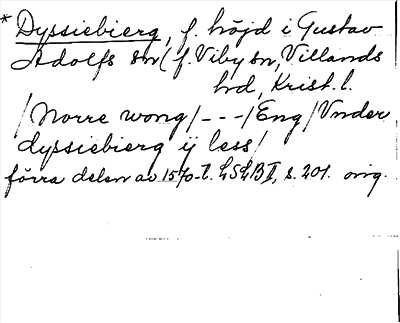 * Dyssiebierg, f. höjd i Gustav
Adolfs sn (f. Viby sn, Villands
hd, Krist. l.
/Norre wong/---/Eng/Vnder
dyssiebierg ij less/
förra delen av 1570-t. LSLB II, s. 201. orig.